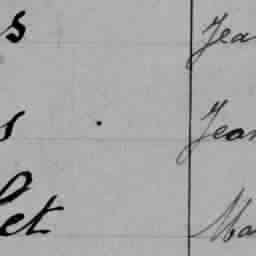 s Jea
s Jean
let Ma